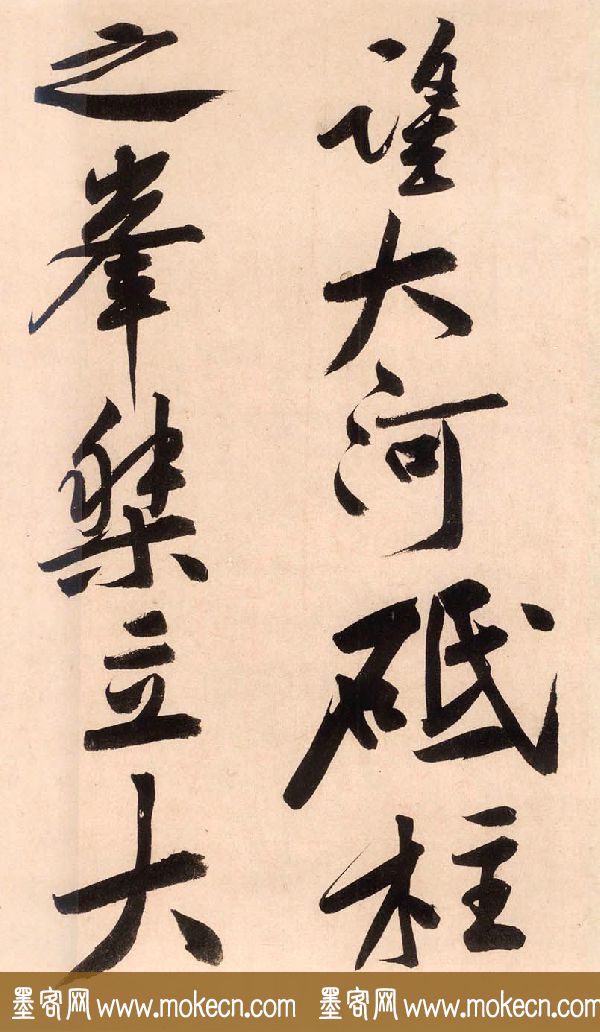 大河砥柱
之峯桀立大
墨客网 www.mokecn.com 墨客网 www.mokecn.com